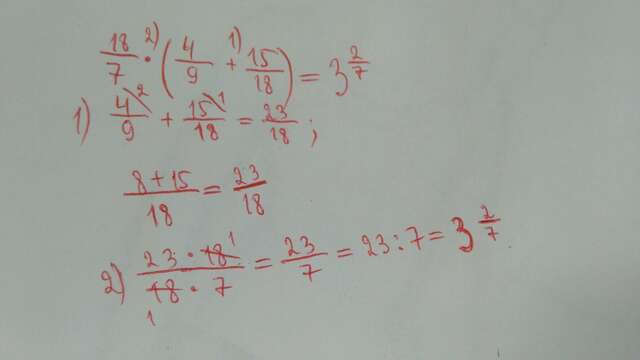 18/7 ·²⁾ (4/9 +¹⁾ 15/18) = 3 2/7
1) 4/9 \² + 15/18 \¹ = 23/18 ;
8+15/18 = 23/18
2) 23 · 18 ¹/18 ₁ · 7 = 23/7 = 23 : 7 = 3 2/7